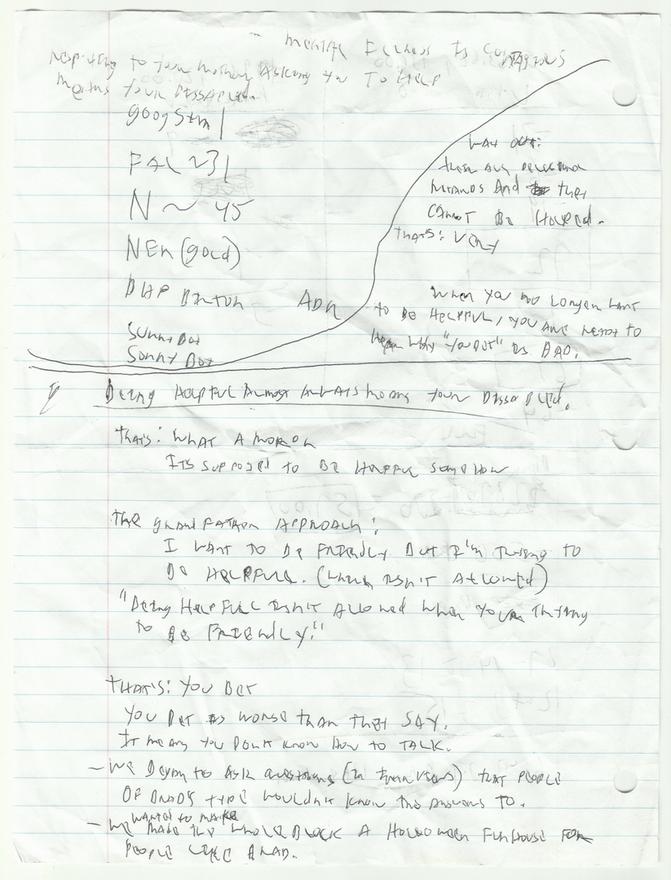 - Mental Illness Is Contagious
to your mother Asking you To Help
means your
googstm |
PAL ~31
N ~ 45
NEM (gold)
BHP
Sunny Bot
Sonny Bot
ADR
WAY OUT:
minds And they
cannot be
that's: very
When you no longer want
to be helpful, you are next to
why "you bet" is BAD.
Being Helpful Almost Always means your
that's: What A moron
Its supposed to be Helpful somehow
The grandfather Approach:
I want to be friendly But I'm trying to
be Helpful. (which isn't Allowed)
"Being Helpful isn't Allowed when you're trying
to be friendly."
That's: you bet
you bet is worse than they say.
It means you don't know how to talk.
- We to Ask questions (in interviews) that people
of Brad's type wouldn't know the answers to.
wanted to make
- We made the whole block A Holloween funhouse for
people like Brad.